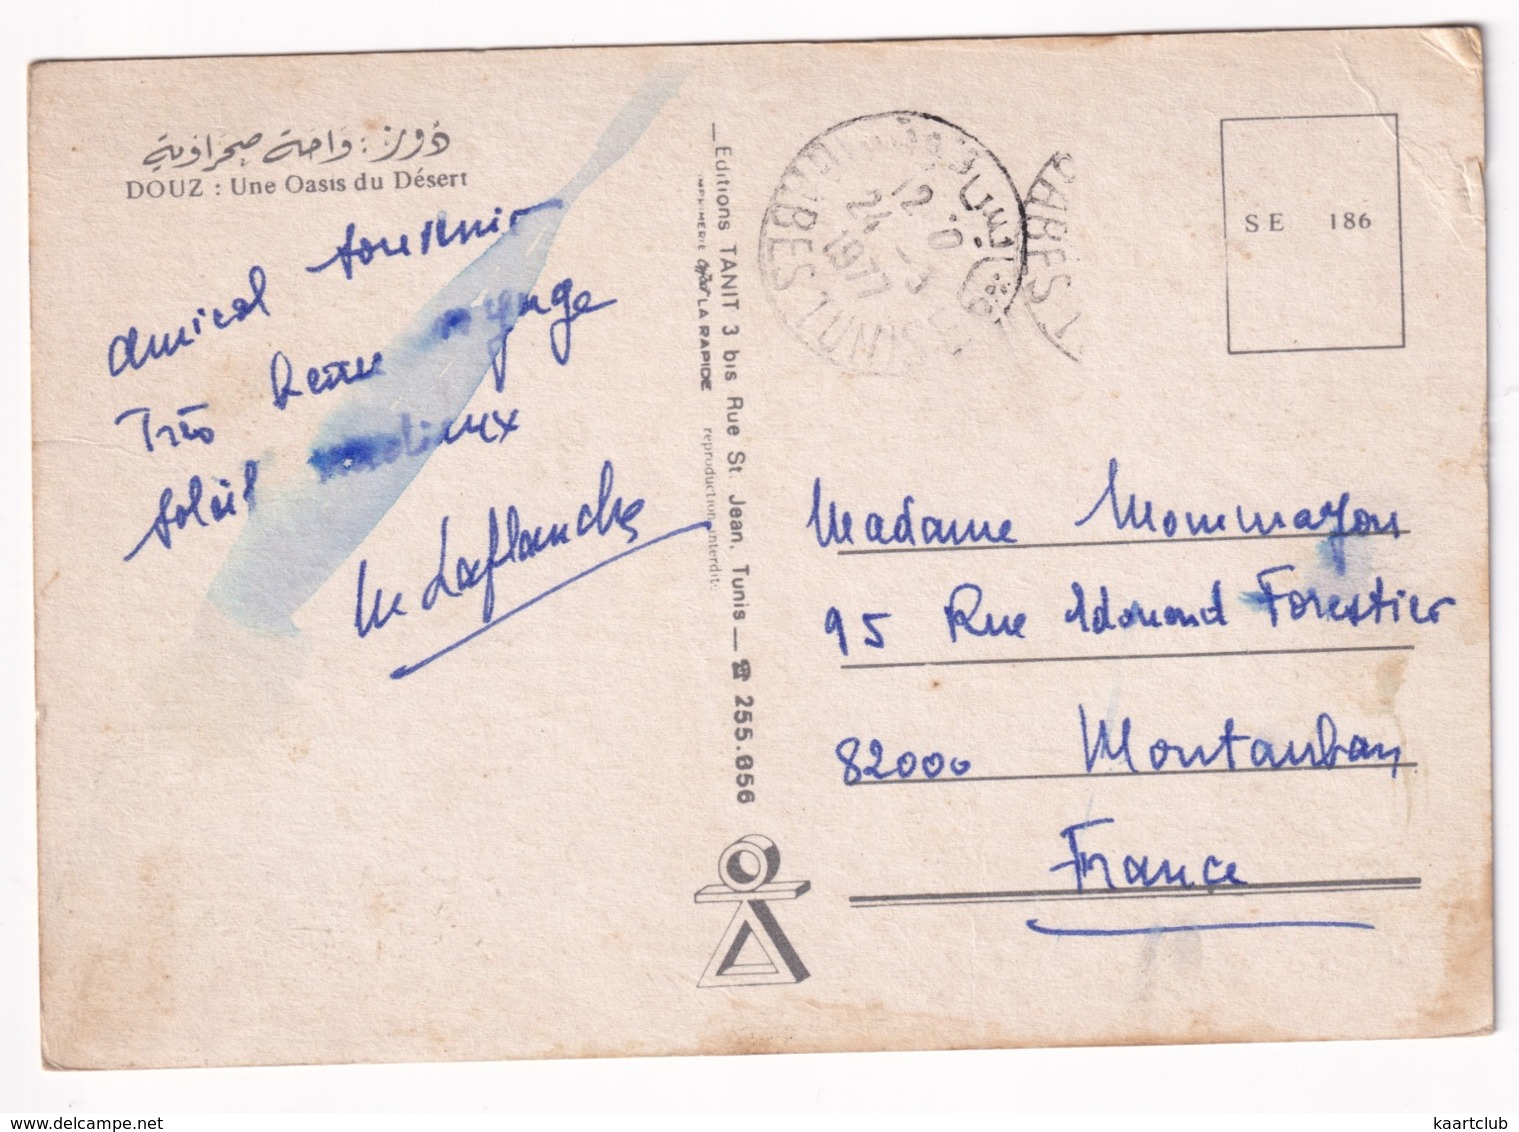 دُوز : وَاحَة صَحْرَاوِيَة
DOUZ : Une Oasis du Désert
amical souvenir
Très beau voyage
soleil radieux
M Laflanche
Editions TANIT 3 bis Rue St. Jean, Tunis — ☎ 255.856
IMPRIMERIE LA RAPIDE reproduction interdite
GABES TUNISIE
12-0
24 -3
1977
GABES T
SE 186
Madame Mommayon
95 Rue Edouard Forestier
82000 Montauban
France
www.delcampe.net
kaartclub